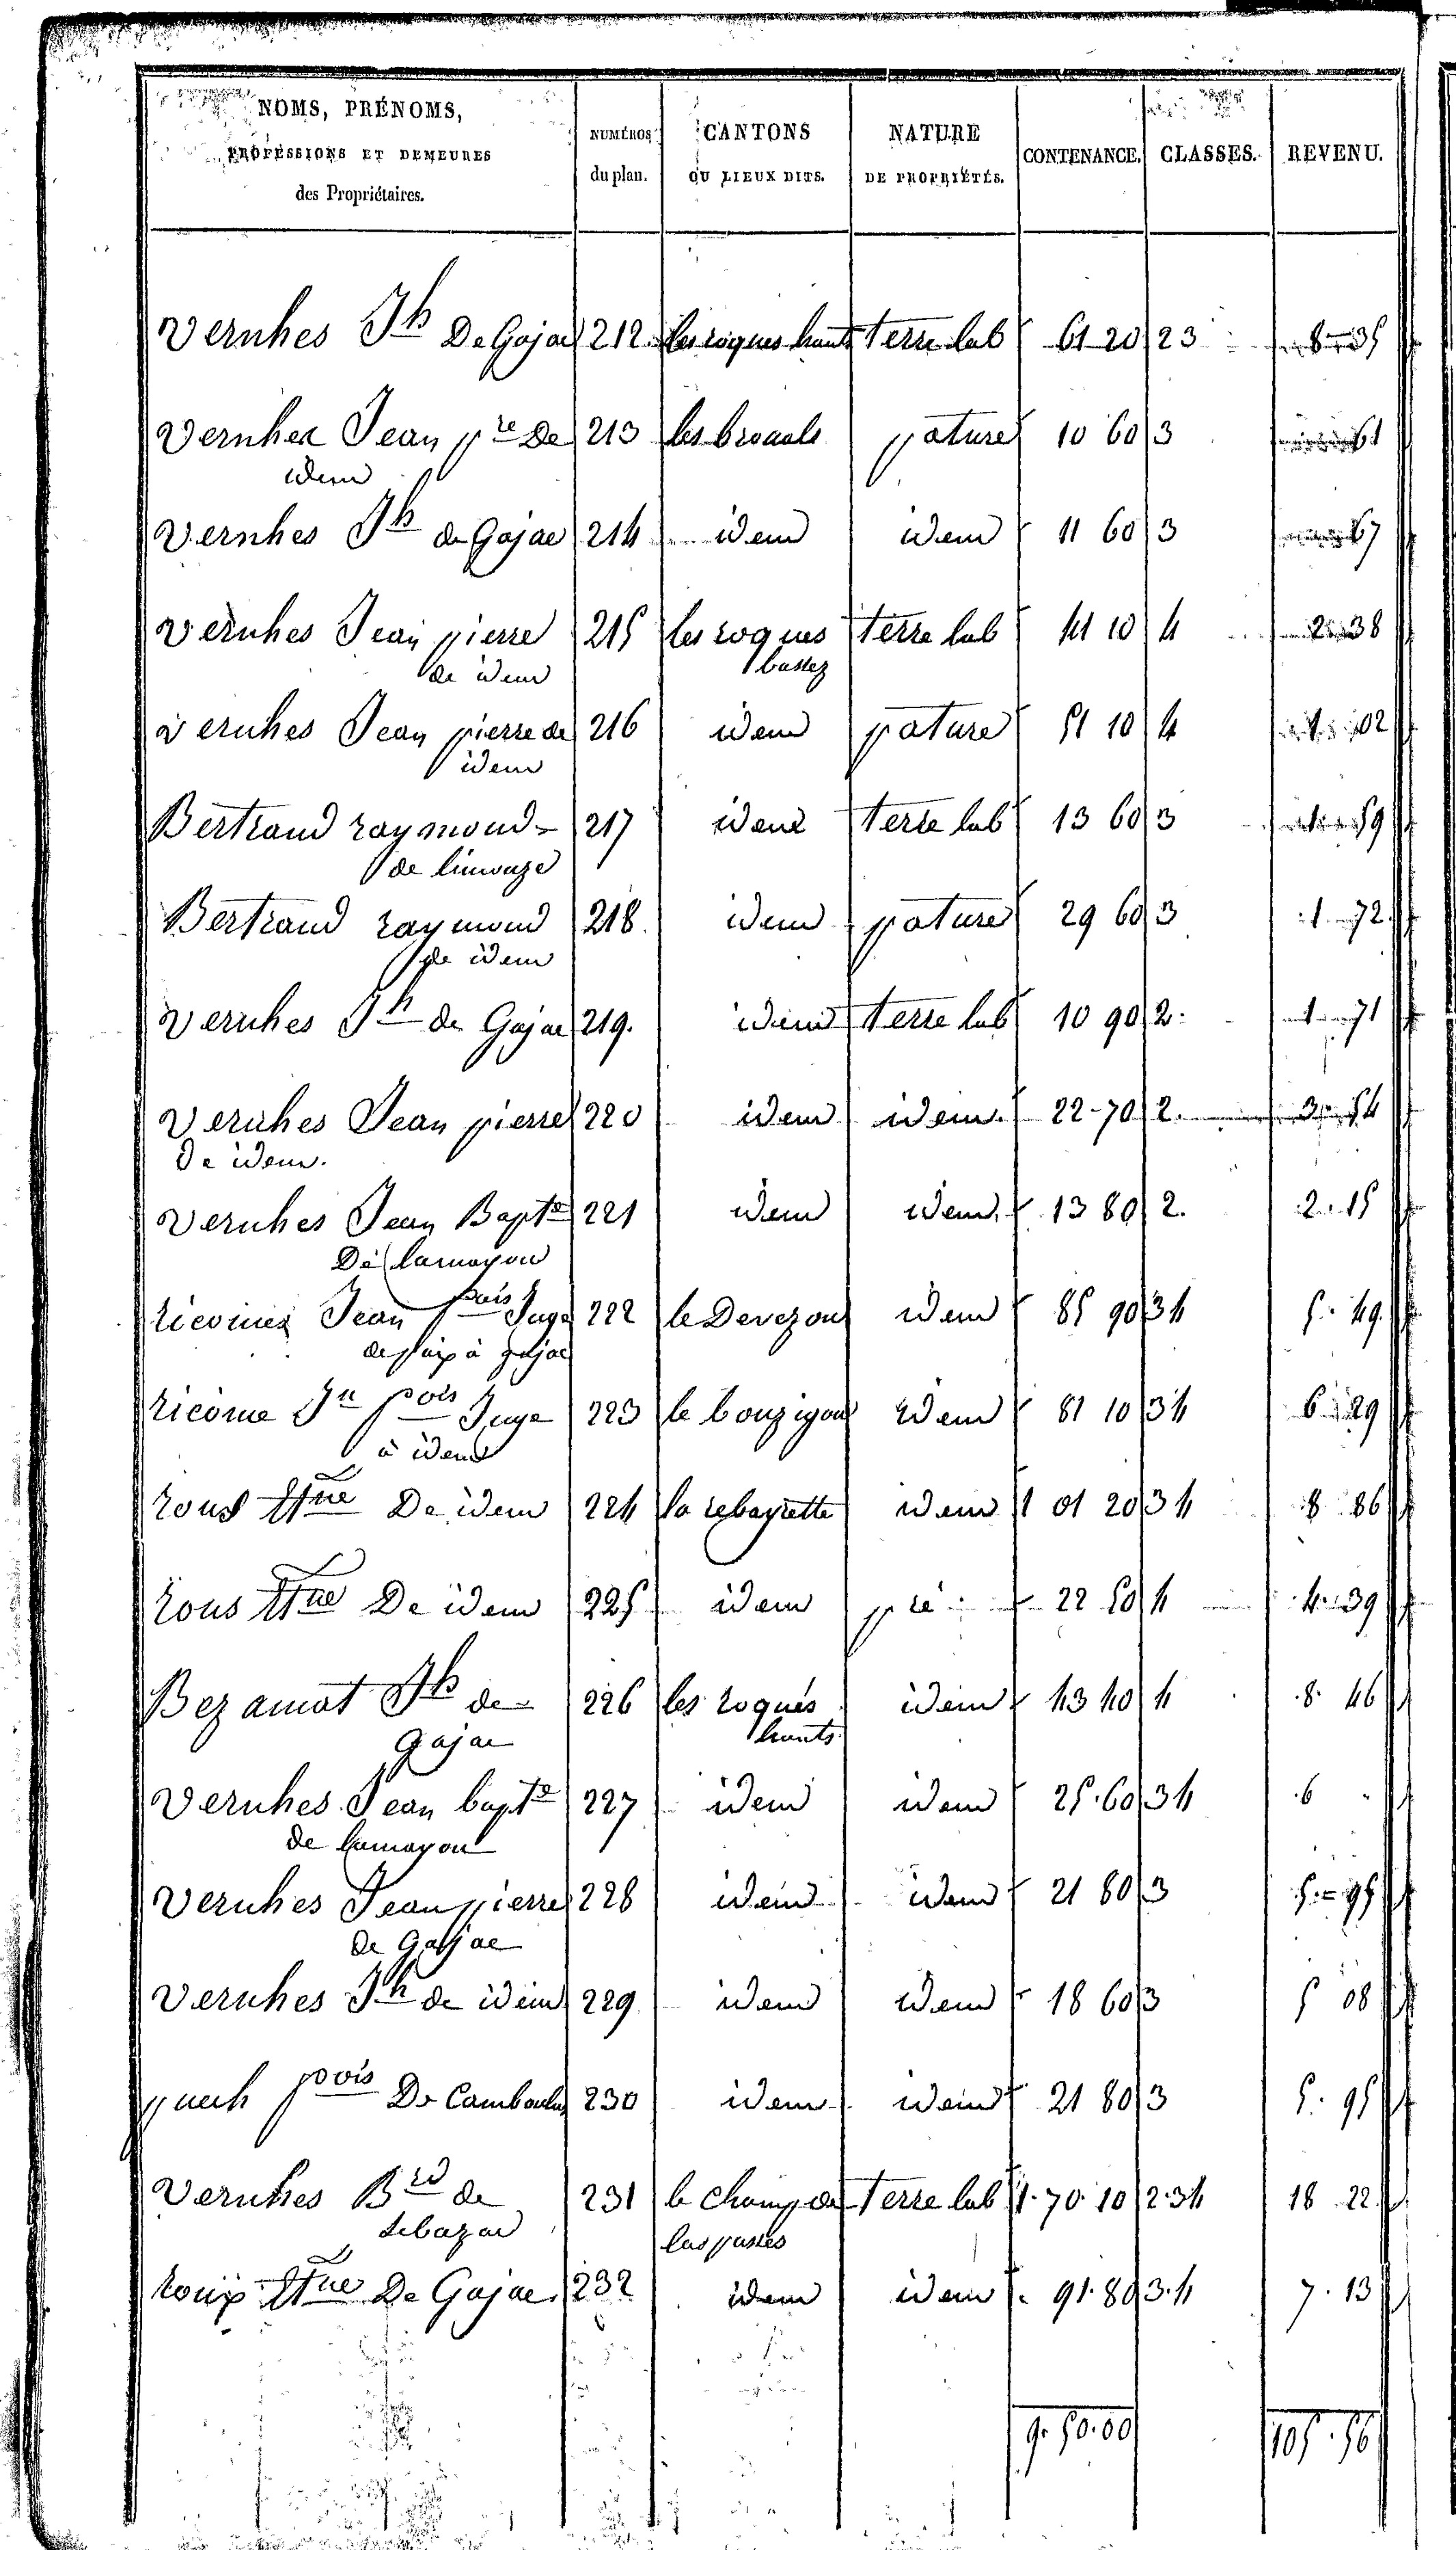 NOMS, PRÉNOMS, PROFESSIONS ET DEMEURES des Propriétaires. NUMÉROS du plan. CANTONS OU LIEUX DITS. NATURE DE PROPRIÉTÉS. CONTENANCE. CLASSES. REVENU.
Vernhes Jh De Gajac 212 les roques hauts terre lab 61 20 23 8 35
Vernhes Jean pre De 213 les brouals pature 10 60 3 61
idem
Vernhes Jh de Gajac 214 idem idem 11 60 3 67
Vernhes Jean pierre 215 les roques terre lab 41 10 4 2 38
de idem bassez
Vernhes Jean pierre de 216 idem pature 51 10 4 1 02
idem
Bertrand raymond 217 idem terre lab 13 60 3 1 59
de limouze
Bertrand raymond 218 idem pature 29 60 3 1 72
de idem
Vernhes Jh de Gajac 219. idem terre lab 10 90 2. 1 71
Vernhes Jean pierre 220 idem idem. 22-70 2. 3 54
De idem.
Vernhes Jean Bapte 221 idem idem 13 80 2. 2. 15
De lamayou
ricome Jean fcois Juge 222 le Devezou idem 85 90 34 5. 49
de paix à gajac
ricome Jn fcois Juge 223 le bouzigou idem 81 10 34 6 29
à idem
rous Etne De idem 224 la rebayrette idem 1 01 20 34 8 86
rous Etne De idem 225 idem pré 22 50 4 4. 39
Bezamat Jh de 226 les roques idem 43 40 4 8. 46
Gajac hauts
Vernhes Jean bapte 227 idem idem 25.60 34 6
de lamayou
Vernhes Jean pierre 228 idem idem 21 80 3 5. 95
de Gajac
Vernhes Jh de idem 229 idem idem 18 60 3 5 08
puech fcois De Camboulas 230 idem idem 21 80 3 5. 95
Vernhes Brd de 231 le champ de terre lab 1. 70 10 2.34 18 22
Sebazac
roux Etne De Gajac 232 idem idem 91.80 3.4 7. 13
9. 50.00 105. 56